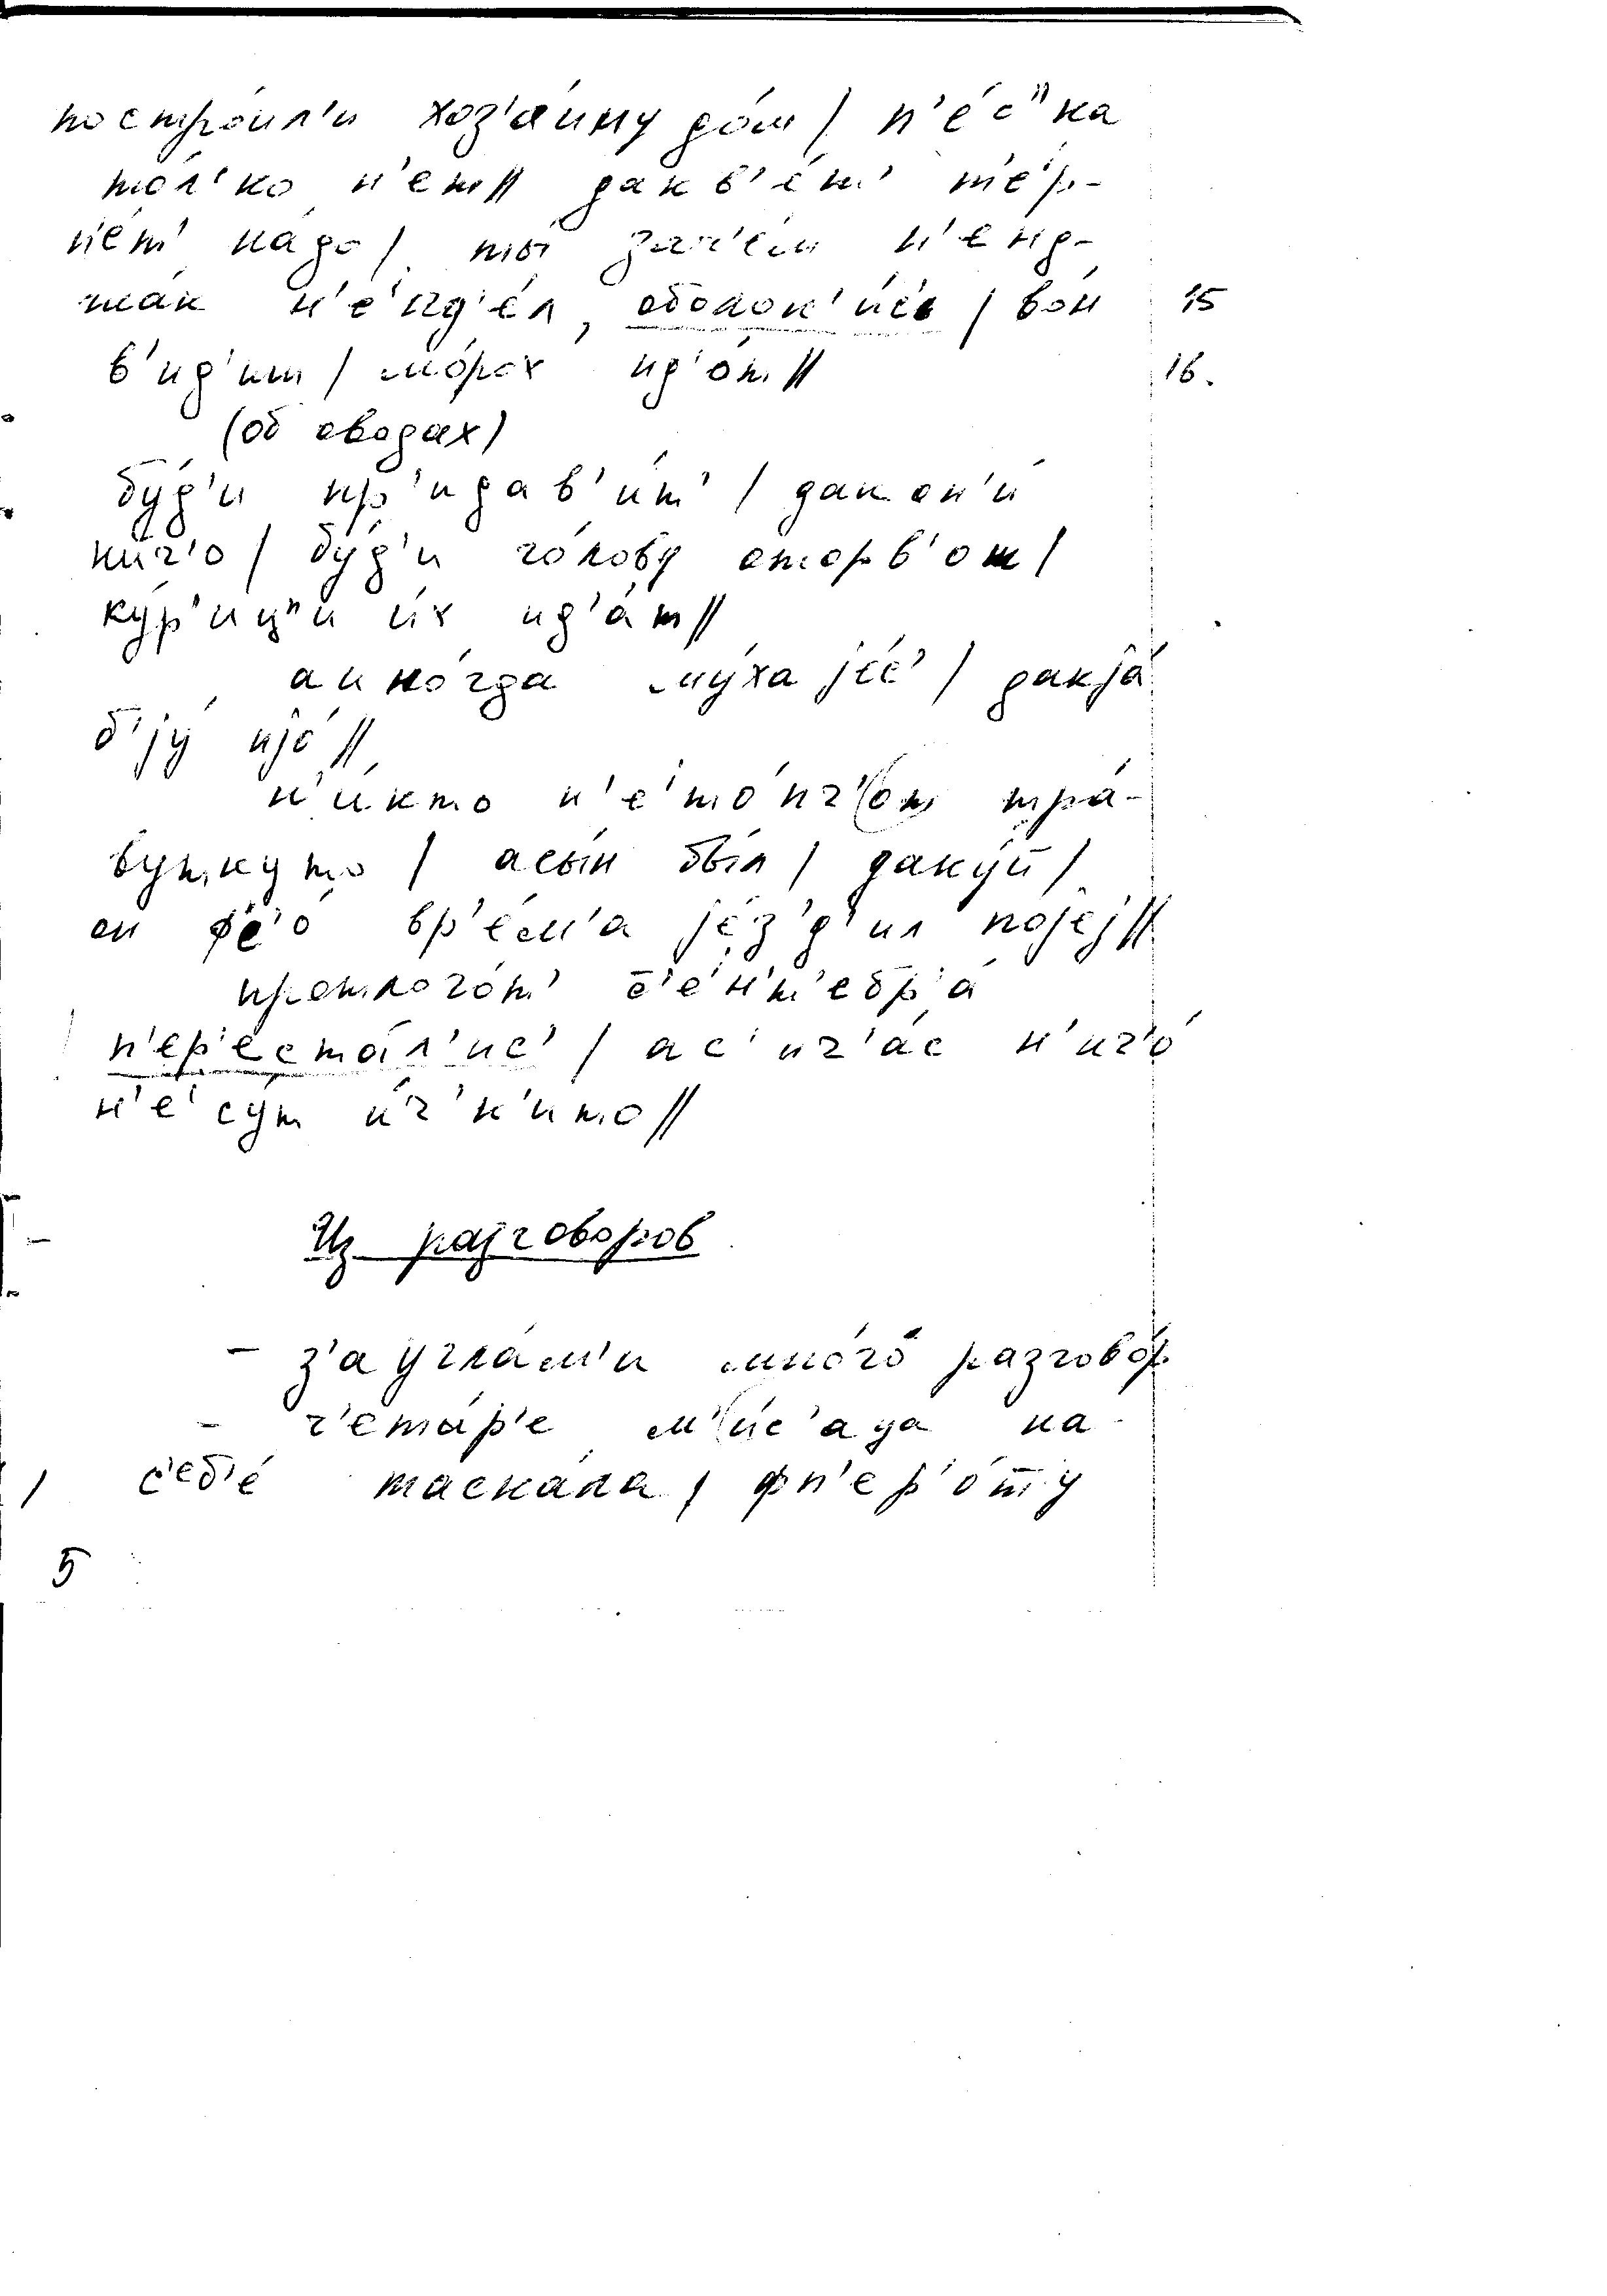 постро́ил'и хоз'а́ину до́м / п'е́с"ка
то́л'ко н'ет // дак в'е́т' т'е́р-
п'е́т' на́до / ты́ зач'е́м п'енд-
жак н'е над'е́л, оболок'и́с' / во́н 15
в'и́д'иш / мо́рох ид'о́т // 16.
(об оводах)
бу́д'и пр'идав'и́т' / дак он'и́
нич'о / бу́д'и го́лову оторв'о́ш /
ку́р'иц"и и́х ид'а́т //
а иногда му́ха jес' / дак jа́
б'jу́ иjо́ //
н'икто́ н'е то́пч'от тра́-
вушкуто / а сы́н бы́л / дак у́й /
он фс'о́ вр'е́м'а jе́з'д'ил поjеj //
прошлого́т' с'е́нт'ебр'а́
п'ер'еста́л'ис' / а с'ич'а́с н'ич'о́
н'е су́т и́ч'к'ито //
Из разговоров
- з'а угла́м'и мно́го разгово́р
- ч'еты́р'е м'и́с'аца на
с'еб'е́ таска́ла / фп'ер'о́т' у
5